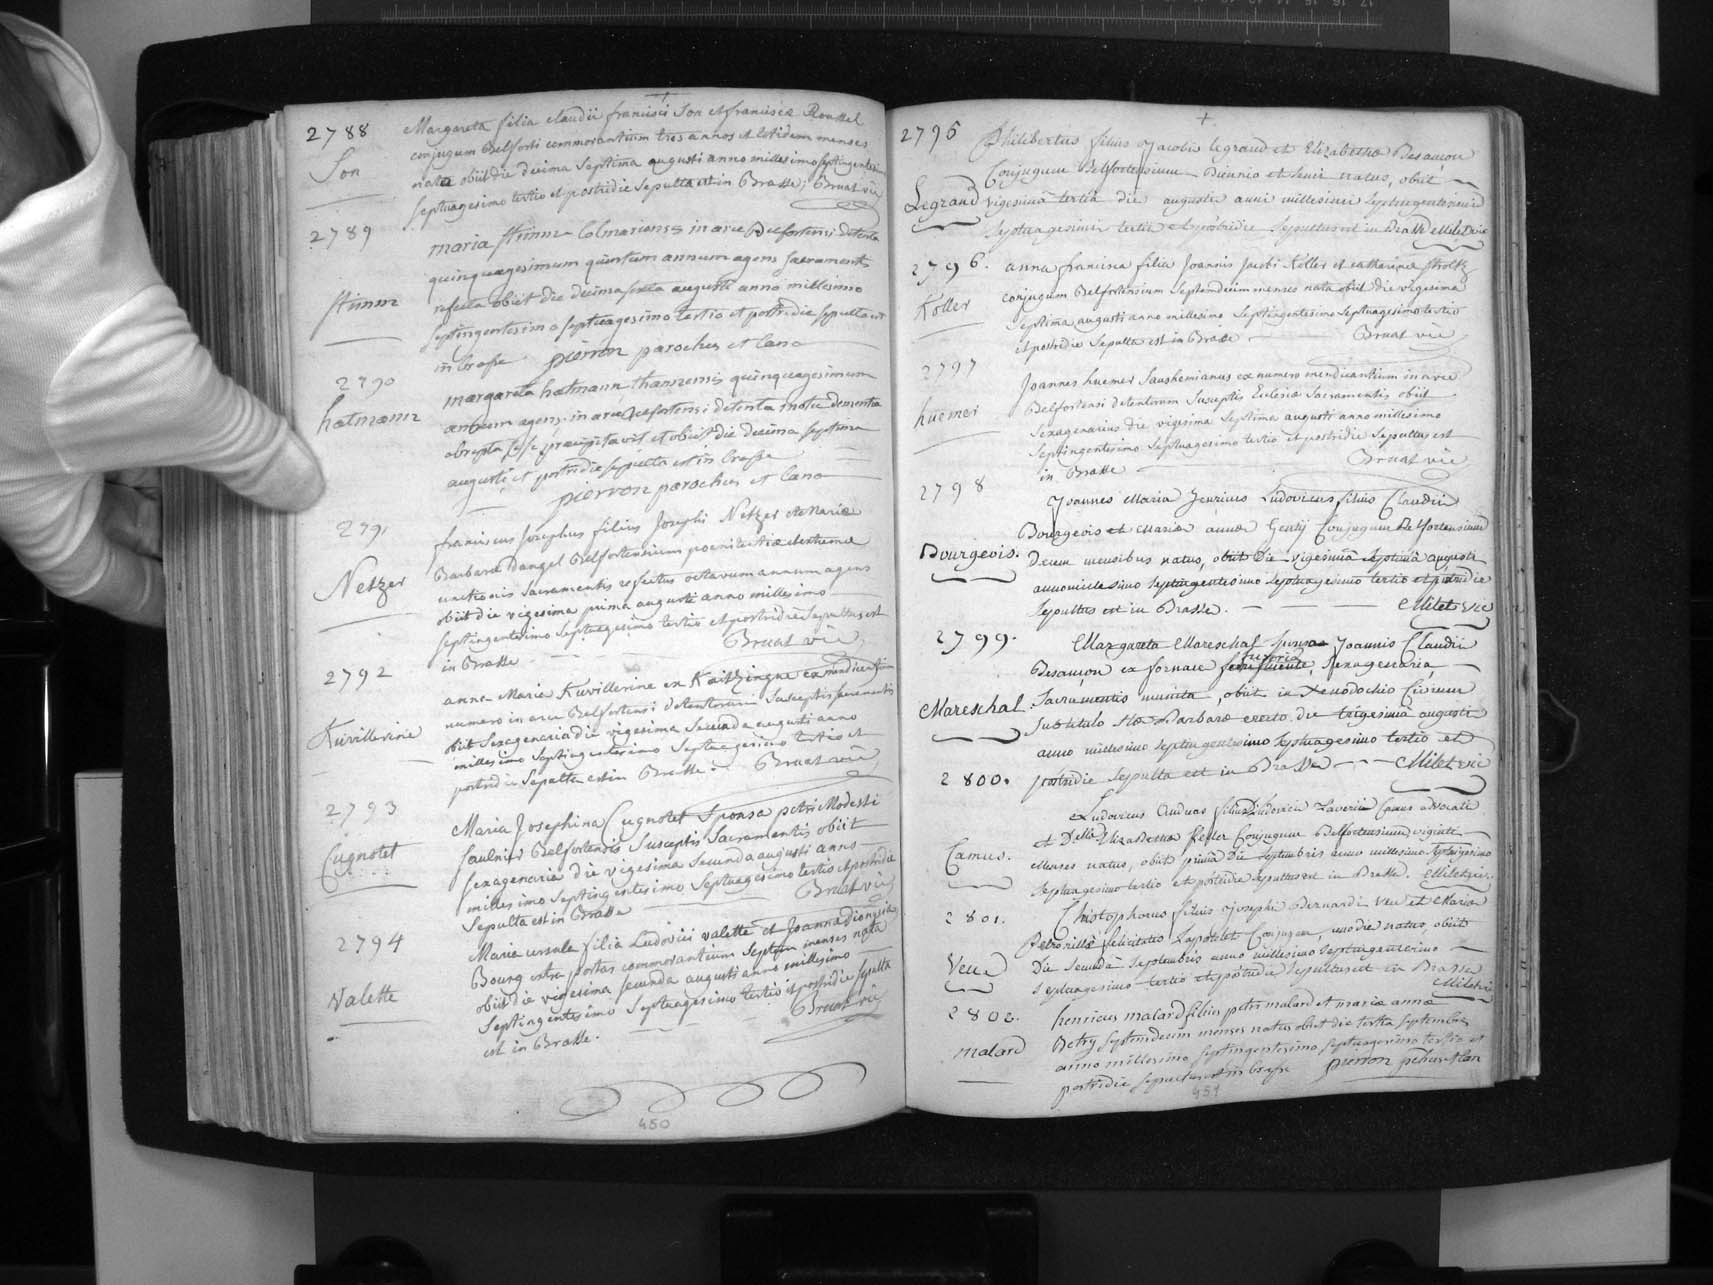 2788
Son
Margareta filia claudii francisci Son et franciscæ Roussel
conjugum Belforti commorantium tres annos et totidem menses
nata obiit die decima septima augusti anno millesimo septingentesimo
septuagesimo tertio et postridie sepulta est in Brasse; Bruat vic
2789
Stimm
maria Stimm Colmariensis in arce Belfortensi detenta
quinquagesimum quintum annum agens sacramentis
refecta obiit die decima sexta augusti anno millesimo
septingentesimo septuagesimo tertio et postridie sepulta est
in brasse pierron parochus et Cano
2790
hatmann
margareta hatmann thannensis quinquagesimum
annum agens in arce Belfortensi detenta motu dementiæ
abrepta sese præcipitavit et obiit die decima septima
augusti et postridie sepulta est in brasse
pierron parochus et Cano
2791
Netzer
franciscus Josephus filius Josephi Netzer et Mariæ
Barbaræ dangel Belfortensium poenitentiæ et extremæ
unctionis Sacramentis refectus octavum annum agens
obiit die vigesima prima augusti anno millesimo
septingentesimo septuagesimo tertio et postridie sepultus est
in Brasse Bruat vic
2792
Kuvillerine
anna Maria Kuvillerine ex Kaitzingue ex mendicantium
numero in arce Belfortensi detentorum susceptis sacramentis
obiit sexagenaria die vigesima secunda augusti anno
millesimo septingentesimo septuagesimo tertio et
postridie sepulta est in Brasse. Bruat vic
2793
Cugnotet
Maria Josephina Cugnotet Sponsa petri Modesti
faulnier Belfortensis susceptis Sacramentis obiit
sexagenaria die vigesima secunda augusti anno
millesimo septingentesimo septuagesimo tertio et postridie
sepulta est in Brasse Bruat vic
2794
Valette
Maria ursula filia Ludovici valette et Joanna dionysia
Bourg extra portas commorantium septem menses nata
obiit die vigesima secunda augusti anno millesimo
septingentesimo septuagesimo tertio et postridie sepulta
est in Brasse. Bruat vic
450
2795
Legrand
Philibertus filius Jacobi legrand et Elizabethæ Besançon
Conjugum Belfortensium Biennio et semi natus, obiit
vigesima tertia die augusti anni millesimi septingentesimi
septuagesimi tertii et postridie sepultus est in Brasse Milet vic
2796.
Koller
anna francisca filia Joannis Jacobi Koller et catharinæ Stroltz
conjugum Belfortensium septemdecim menses nata obiit die vigesima
septima augusti anno millesimo septingentesimo septuagesimo tertio
et postridie sepulta est in Brasse Bruat vic
2797
huemer
Joannes huemer Saushemianus ex numero mendicantium in arce
Belfortensi detentorum susceptis Eclesiæ Sacramentis obiit
sexagenarius die vigesima septima augusti anno millesimo
septingentesimo septuagesimo tertio et postridie sepultus est
in Brasse Bruat vic
2798
Bourgeois.
Joannes Maria Ludovicus filius Claudii
Bourgeois et Mariæ annæ Conjugum Belfortensium
decem mensibus natus, obiit die vigesima septima augusti
anno millesimo septingentesimo septuagesimo tertio et postridie
sepultus est in Brasse. Milet vic
2799.
Mareschal
Margareta Mareschal sponsa Joannis Claudii
Besançon ex fornace sexagenaria
Sacramentis munita, obiit in Xenodochio Civium
sub titulo Stæ Barbaræ erecto die trigesima augusti
anno millesimo septingentesimo septuagesimo tertio et
postridie sepulta est in Brasse Milet vic
2800.
Camus.
Ludovicus filius Ludovici Xaverii Camus advocati
et Dellæ Elizabethæ Keller Conjugum Belfortensium, viginti
menses natus, obiit prima die septembris anno millesimo septingentesimo
septuagesimo tertio et postridie sepultus est in Brasse. Milet vic.
2801.
Veue
Christophorus filius Josephi Bernardi Veu et Mariæ
Petronillæ felicitatis Lapostolet Conjugum, uno die natus, obiit
Die secunda septembris anno millesimo septingentesimo
septuagesimo tertio et postridie sepultus est in Brasse
Milet vic
2802.
malard
henricus malard filius petri malard et mariæ annæ
Betry septemdecim menses natus obiit die tertia septembris
anno millesimo septingentesimo septuagesimo tertio et
postridie sepultus est in brasse pierron
451